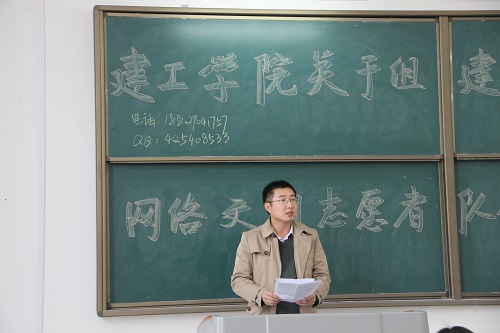 建工学院关于组建
电话:
QQ: 425408533
网络文志愿者队